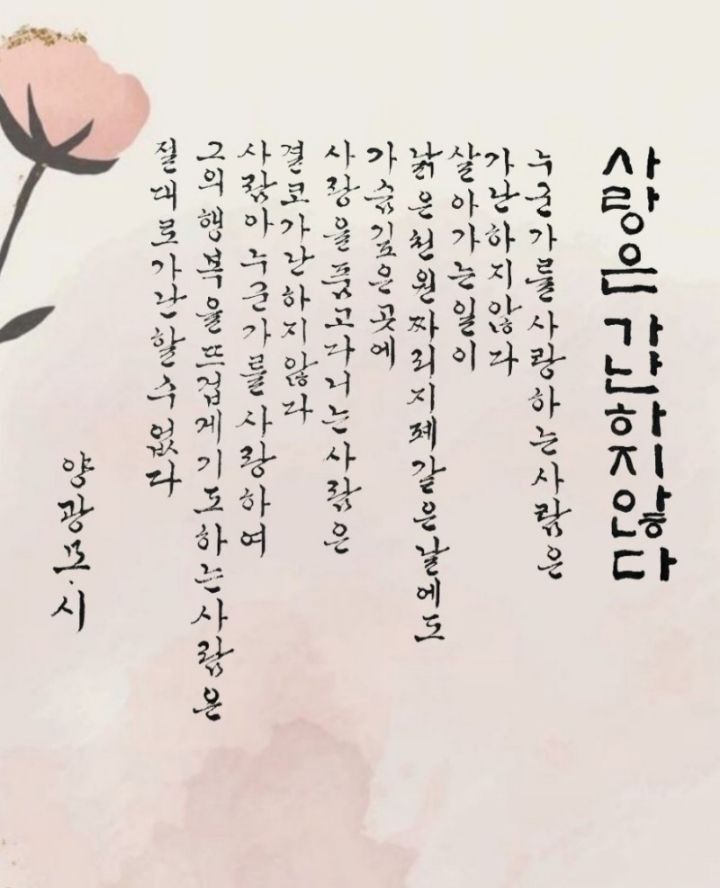 사랑은 가난하지 않다
누군가를 사랑하는 사람은
가난하지 않다
살아가는 일이
낡은 천원짜리 지폐 같은 날에도
가슴 깊은 곳에
사랑을 품고 다니는 사람은
결코 가난하지 않다
사람아 누군가를 사랑하여
그의 행복을 뜨겁게 기도하는 사람은
절대로 가난할 수 없다
양광모·시